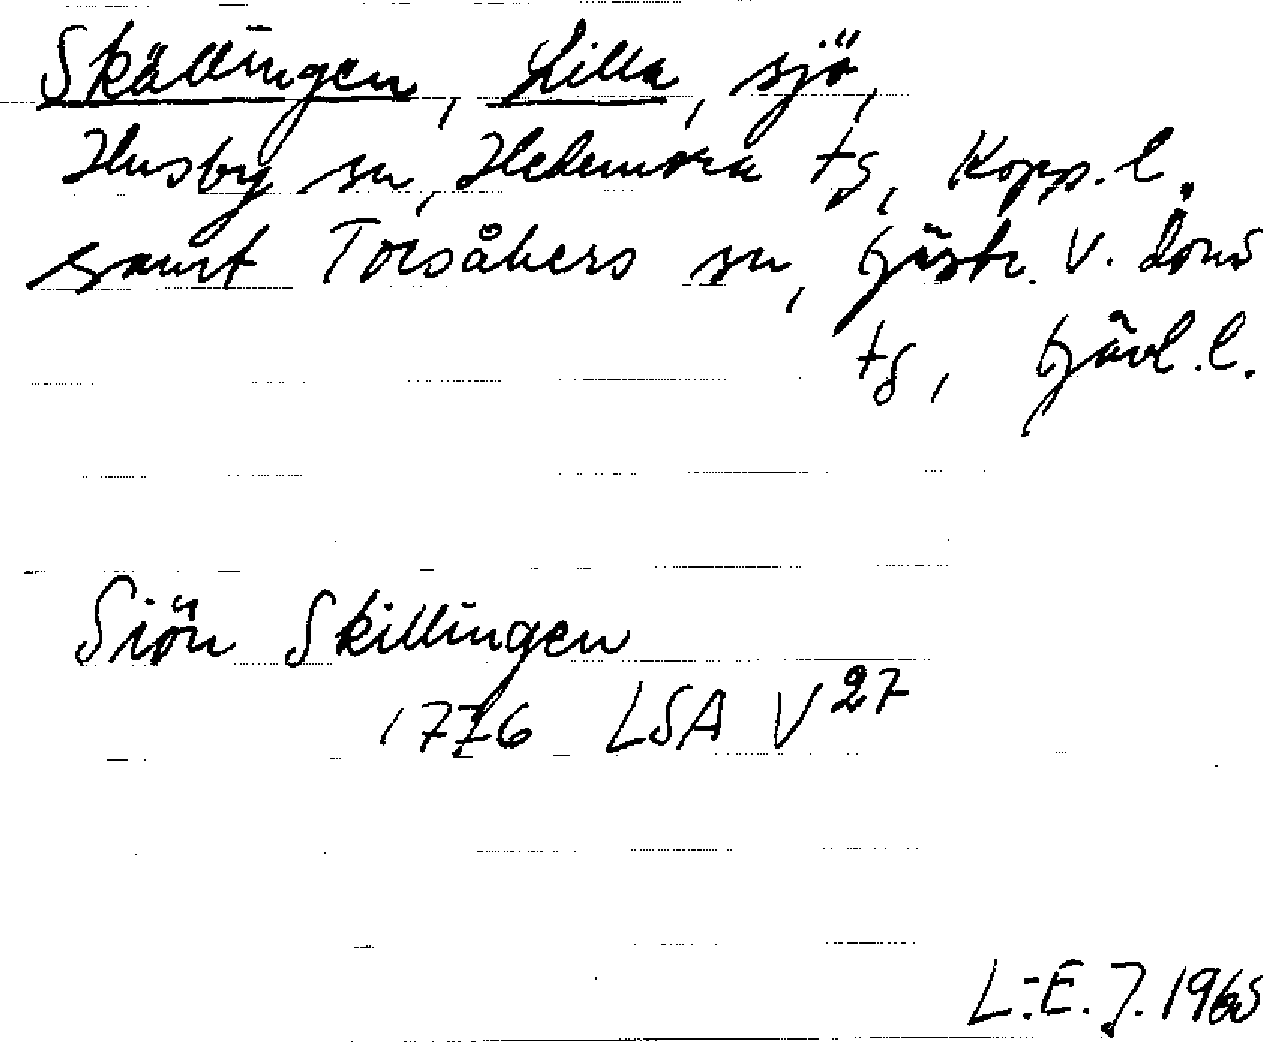 Skällingen, Lilla, sjö,
Husby sn, Hedemora tg, Kopp. l.
samt Torsåkers sn, Gästr. V. doms
tg, Gävl. l.
Siön Skillingen
1776 LSA V27
L.-E. J. 1965